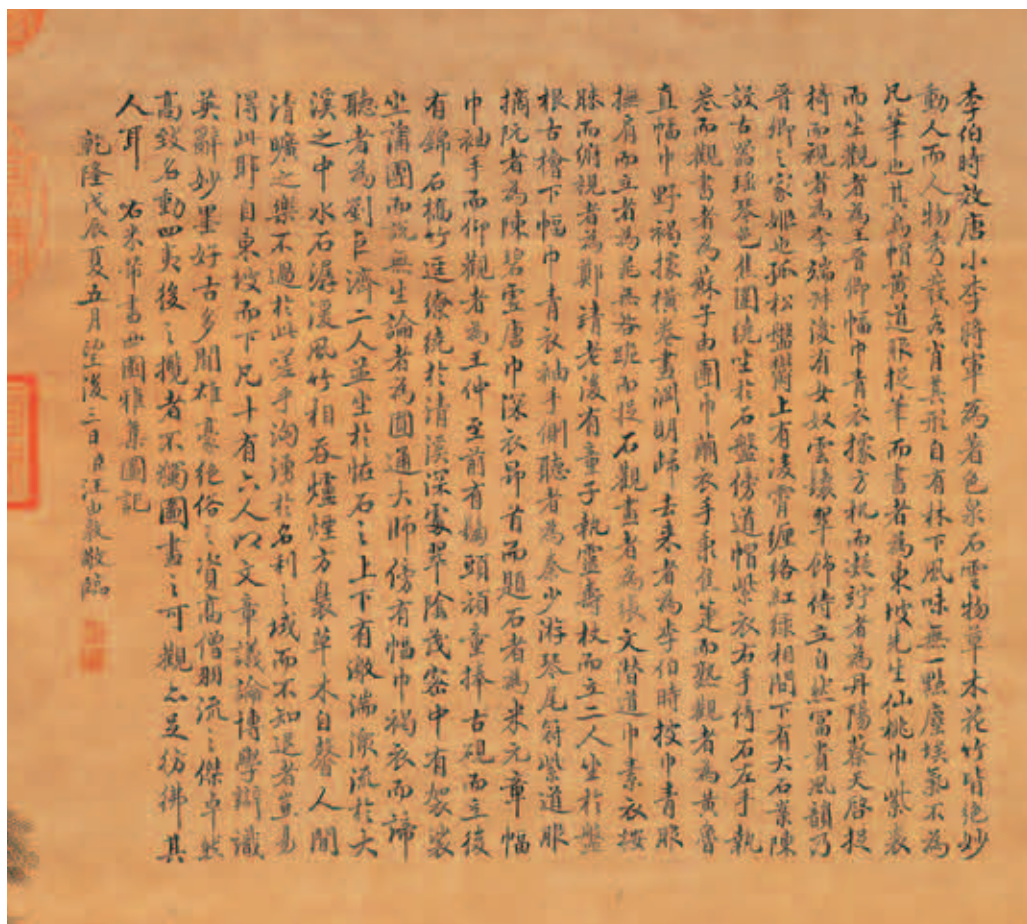 李伯時效唐小李將軍為著色泉石雲物草木花竹皆絕妙
動人而人物秀發各肖其形自有林下風味無一點塵埃氣不為
凡筆也其烏帽黃道服捉筆而書者為東坡先生仙桃巾紫裘
而坐觀者為王晉卿幅巾青衣據方机而凝竚者為丹陽蔡天啓捉
椅而視者為李端叔後有女奴雲鬟翠飾侍立自然富貴風韻乃
晉卿之家姬也孤松盤鬱上有凌霄纏絡紅綠相間下有大石案陳
設古器瑤琴芭蕉圍繞坐於石盤傍道帽紫衣右手倚石左手執
卷而觀書者為蘇子由團巾繭衣手秉蕉箑而熟觀者為黃魯
直幅巾野褐據橫卷畫淵明歸去來者為李伯時披巾青服
撫肩而立者為晁無咎跪而捉石觀畫者為張文潛道巾素衣按
膝而俯視者為鄭靖老後有童子執靈壽杖而立二人坐於盤
根古檜下幅巾青衣袖手側聽者為秦少游琴尾冠紫道服
摘阮者為陳碧虛唐巾深衣昂首而題石者為米元章幅
巾袖手而仰觀者為王仲至前有鬅頭頑童捧古硯而立後
有錦石橋竹逕繚繞於清溪深處翠陰茂密中有袈裟
坐蒲團而說無生論者為圓通大師傍有幅巾褐衣而諦
聽者為劉巨濟二人並坐於怪石之上下有激湍潨流於大
溪之中水石潺湲風竹相吞爐煙方裊草木自馨人間
清曠之樂不過於此嗟乎洶湧於名利之域而不知退者豈易
得此耶自東坡而下凡十有六人以文章議論博學辨識
英辭妙墨好古多聞雄豪絕俗之資高僧羽流之傑卓然
高致名動四夷後之攬者不獨圖畫之可觀亦足彷彿其
人耳 右米芾書西園雅集圖記
乾隆戊辰夏五月望後三日臣汪由敦敬臨